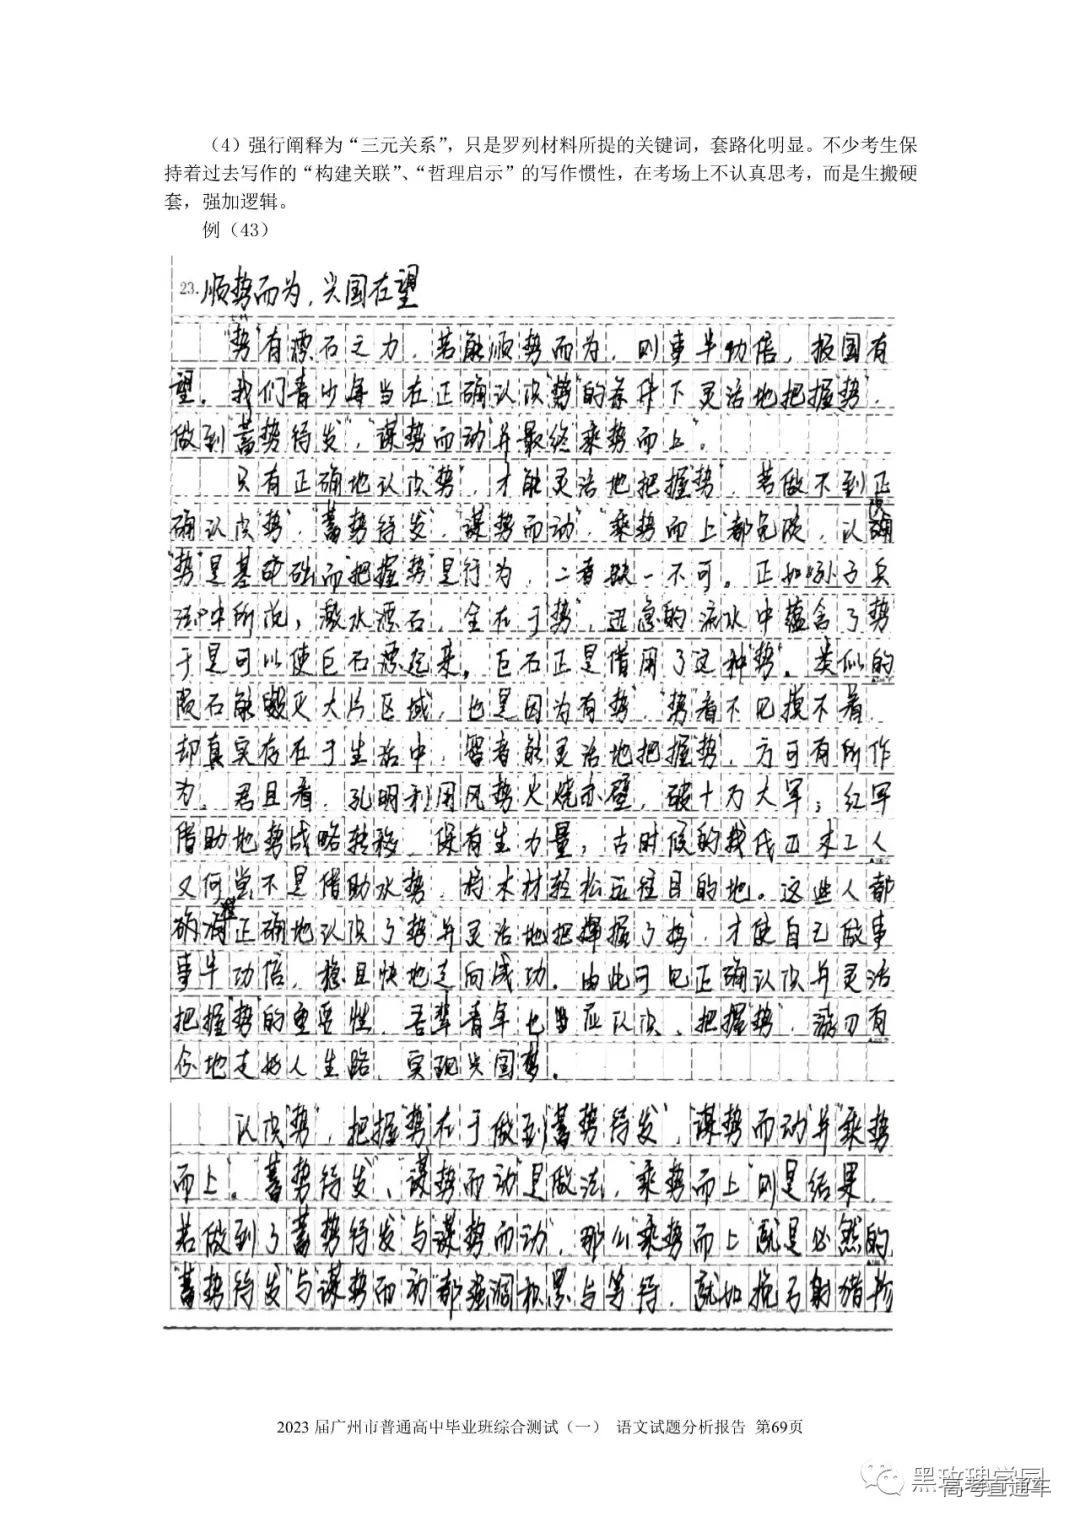 （4）强行阐释为“三元关系”，只是罗列材料所提的关键词，套路化明显。不少考生保
持着过去写作的“构建关联”、“哲理启示”的写作惯性，在考场上不认真思考，而是生搬硬
套，强加逻辑。
例（43）
23.顺势而为，兴国在望
“势”有漂石之力，若能顺势而为，则事半功倍，报国有
望。我们青少年当在正确认识“势”的条件下灵活地把握“势”，
做到“蓄势待发”，“谋势而动”并最终“乘势而上”。
只有正确地认识“势”，才能灵活地把握“势”，若做不到正
确认识“势”，“蓄势待发”，“谋势而动”，“乘势而上”都免谈，认识
“势”是基础而把握势是行为，二者缺一不可。正如《孙子兵
法》中所说，激水漂石，全在于“势”，迅急的流水中蕴含了“势”
于是可以使巨石漂起来，巨石正是借用了这种“势”。类似的
陨石能毁灭大片区域，也是因为有“势”，“势”看不见摸不着，
却真实存在于生活中，智者能灵活地把握“势”，方可有所作
为。君且看，孔明利用风势火烧赤壁，破十万大军；红军
借助地势战略转移，保有生力量；古时候的伐木工人
又何尝不是借助水势，将木材轻松运往目的地。这些人都
正确地认识了“势”并灵活地把握了“势”，才使自己做事
事半功倍，稳且快地走向成功。由此可见正确认识并灵活
把握“势”的重要性，吾辈青年也当应认识、把握“势”，游刃有
余地走好人生路，实现兴国梦。
认识“势”，把握“势”在于做到“蓄势待发”，“谋势而动”并“乘势
而上”。“蓄势待发”、“谋势而动”是做法，“乘势而上”则是结果，
若做到了“蓄势待发”与“谋势而动”，那么“乘势而上”就是必然的
“蓄势待发”与“谋势而动”都强调积累与等待，就如挽弓射猎物
2023 届广州市普通高中毕业班综合测试（一） 语文试题分析报告 第69页
黑玫瑰学园
高考直通车